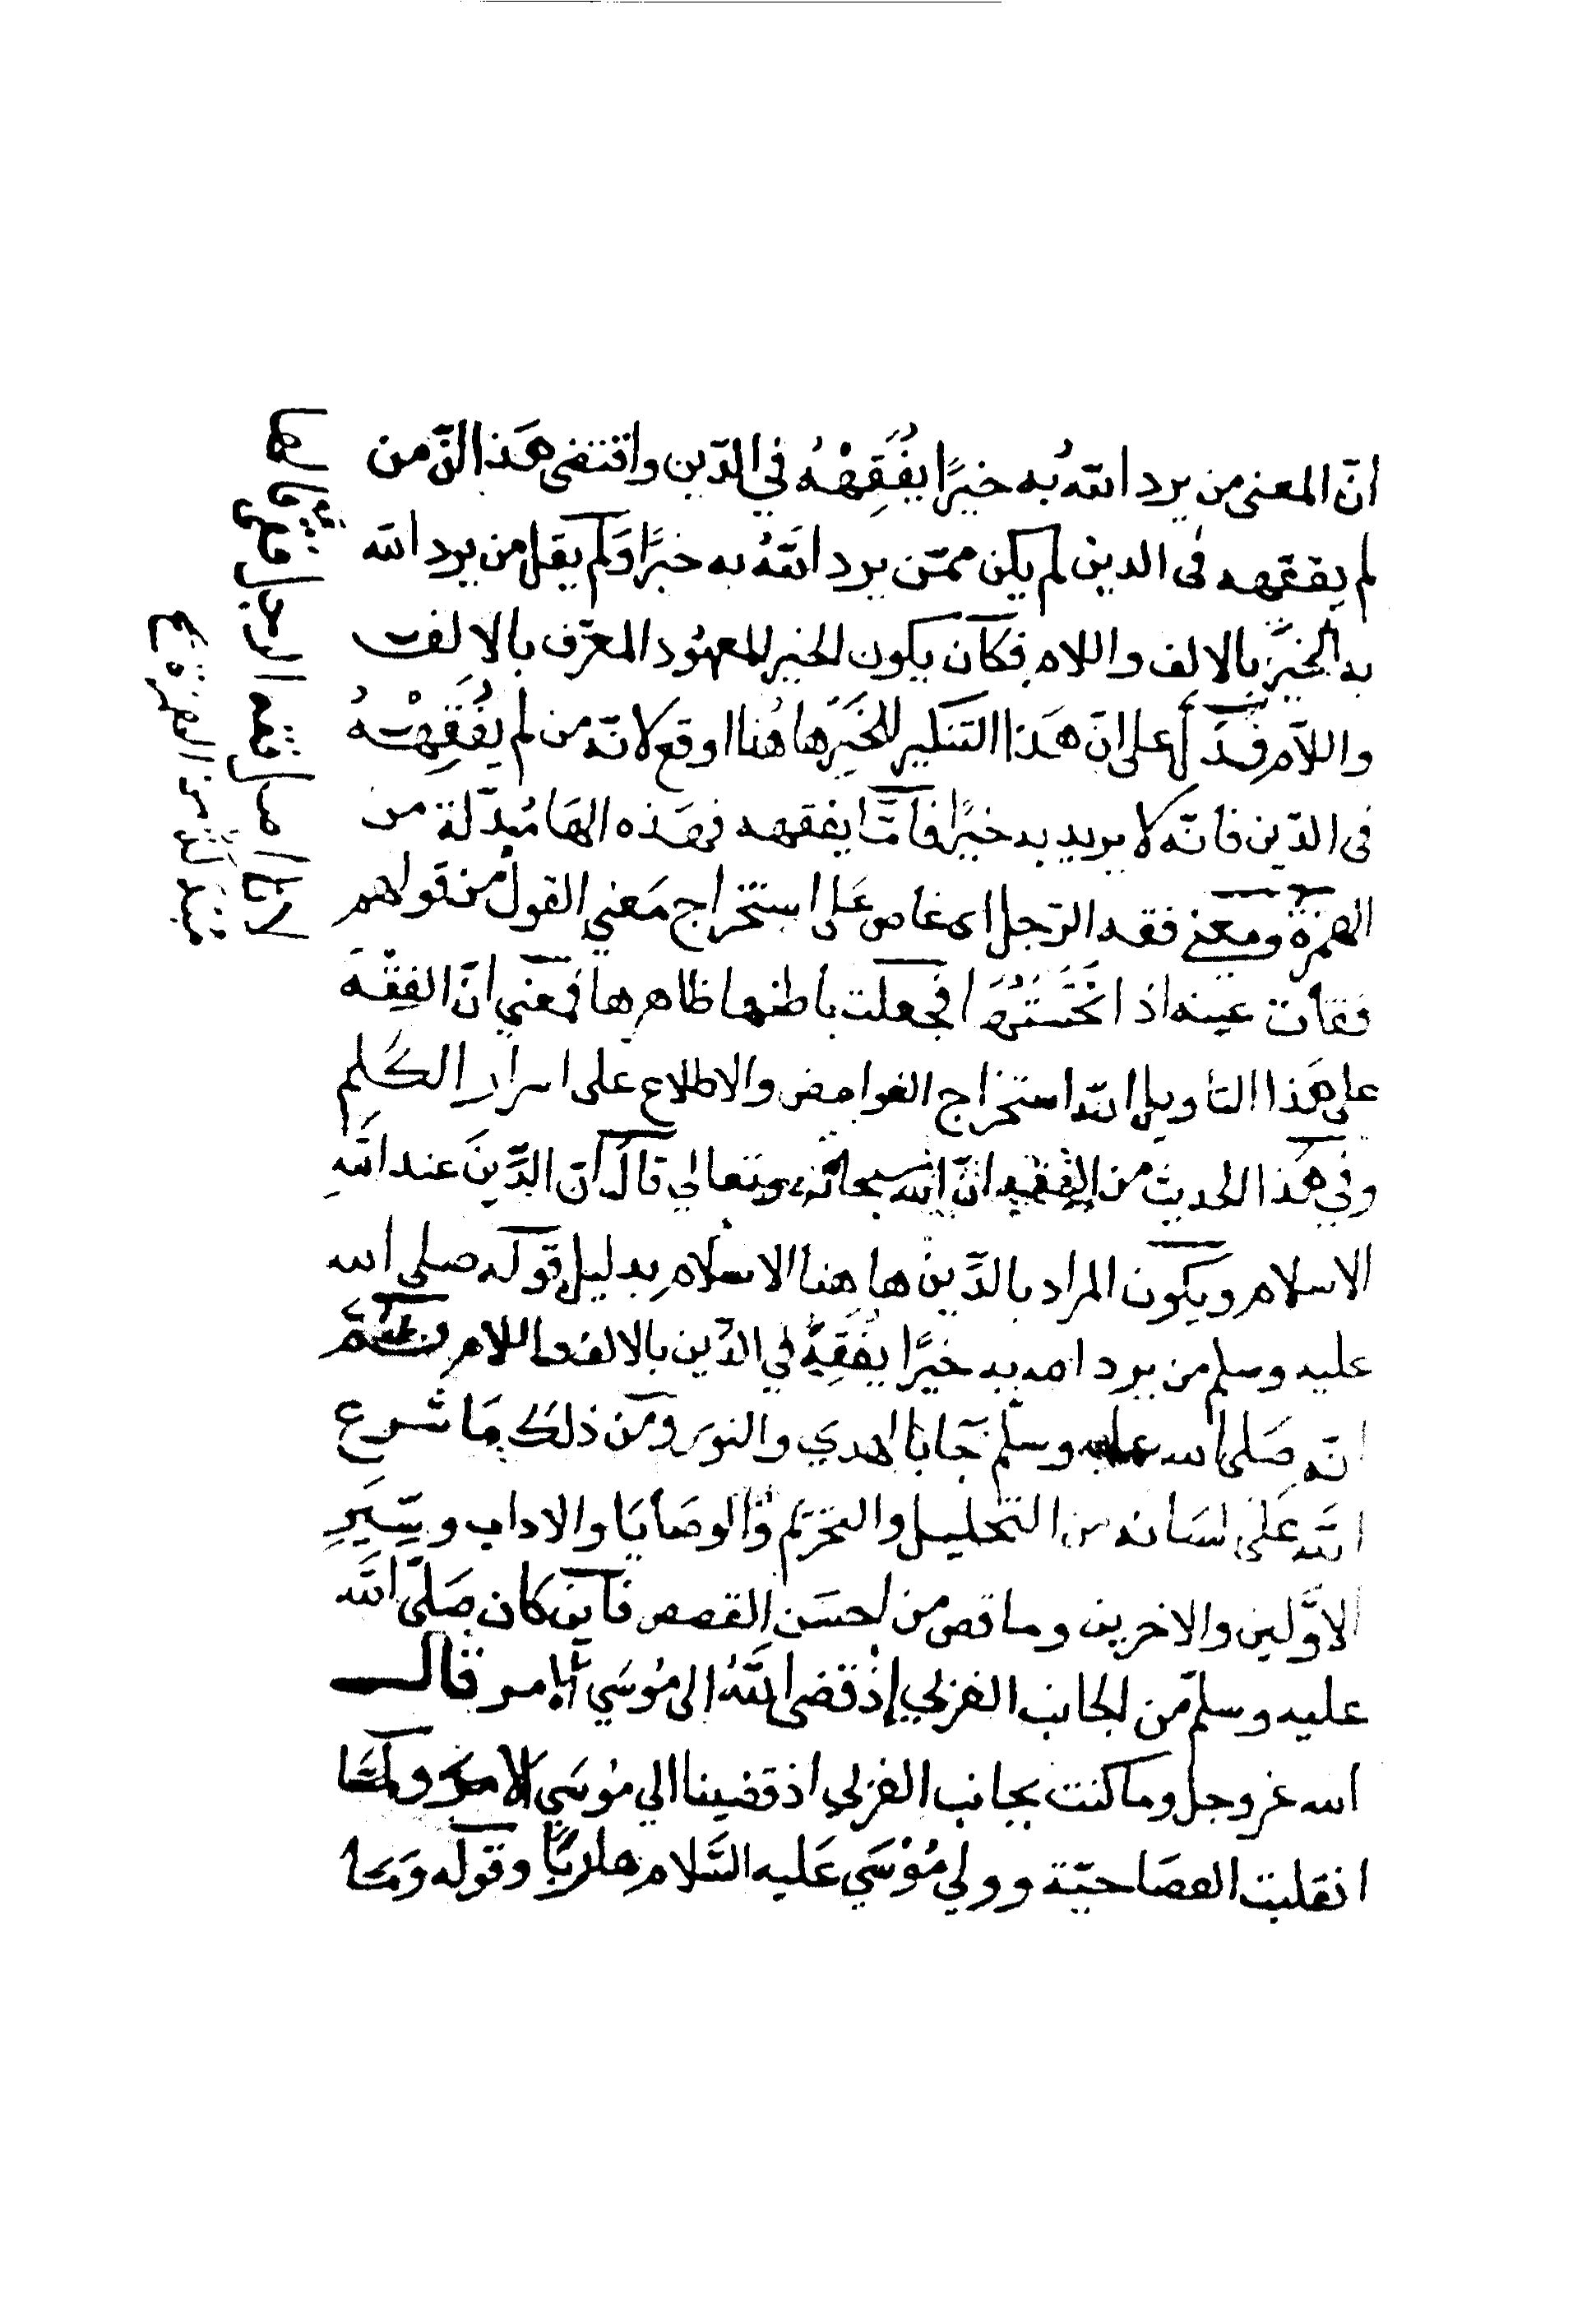 انّ المعنى من يرد اللهُ به خيرًا يفُقِّهْهُ في الدّين واقتضى هَذا انّ من
لم يفقّهه فى الدين لم يكن ممّن يرد اللهُ به خيرًا وَلم يقل من يرد الله
به الخيَر بالالف واللام فكان يكون الخير المعهُود المعرّف بالالف
واللاَم فدَلّ على انّ هَذا التنكير للخيَر هاهُنا اوقع لانّه من لم يُفَقِّهْهُ
فى الدّين فانّه لا يريد به خيرًا فامّا يفقهه فهَذه الهَا مُبدّلة من
الهمزة ومعنى فقه الرّجل اى غاص عَلى استخراج مَعني القول من قولهم
فقات عينه اذا بخَسْتُهَا فجعلت باطنها ظاهرها فمعني انّ الفِقْهَ
على هَذا التاويل انّه استخراج الغوامض والاطلاع على اسرار الكَلم
وفي هَذا الحديث من الفقه انّ الله سبحانه وتعالي قالَ ان الدِّينَ عند اللهِ
الاسلام ويكون المراد بالدّين هاهنا الاسلام بدليل قوله صلى الله
عليه وسلم من يرد الله به خيرًا يُفَقِّههُ في الدّين بالالف واللام
انّه صَلى الله عليه وسلّم جَا بالهدي والنور ومَن ذلك مَا شرع
اللَّه عَلى لسَانه من التحليل والتحريم وَالوصَايَا والاداب وسِيَرِ
الاوَّلين والاخرين وما قص من احسَن القصص فاين كان صَلّى اللَّه
عليه وسلّم من الجانب الغربي إذْ قضى اللَّهُ الى مُوسَي الامر قال
الله عز وجل وما كنت بجانب الغربي اذ قضينا الي مُوسَي الامر ولمّا
انقلبت العصَا حيّة وولي مُوْسَي عَليه السَّلام هاربًا وقوله وَمَا
لانّ اصل فقه الرجل
من الهمزة ع